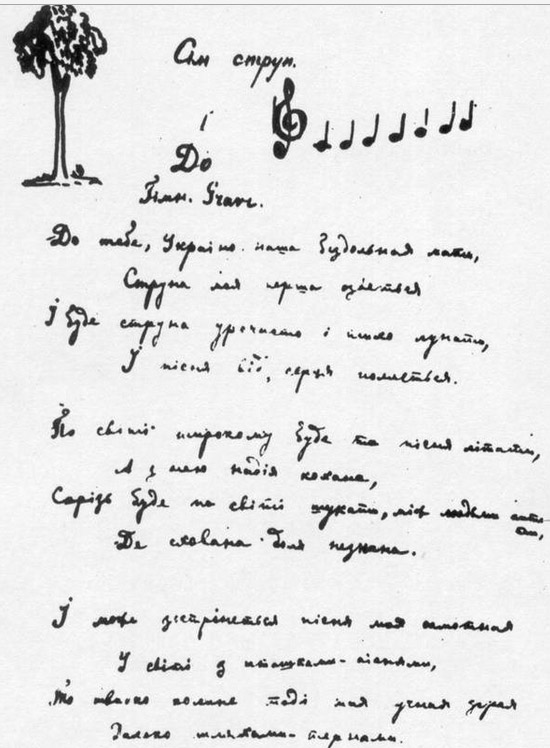 Сім струн.
І
До
Гімн. Grave.
До тебе, Україно наша бездольная мати,
Струна моя перша озветься
І буде струна урочисто і тихо лунати,
І пісня від серця поллеться.
По світі широкому буде та пісня літати,
А з нею надія кохана,
Скрізь буде по світі шукати, між людьми пита-
ти,
Де схована доля незнана.
І може зустрінеться пісня моя самотная
У світі з пташками-піснями,
То швидко полине тоді тая гучная зграя
Далеко шляхами-тернами.